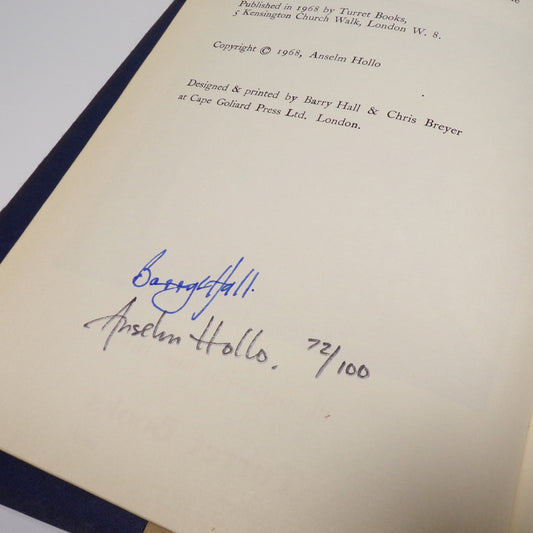 Published in 1968 by Turret Books,
5 Kensington Church Walk, London W. 8.
Copyright © 1968, Anselm Hollo
Designed & printed by Barry Hall & Chris Breyer
at Cape Goliard Press Ltd. London.
Barry Hall.
Anselm Hollo. 72/100